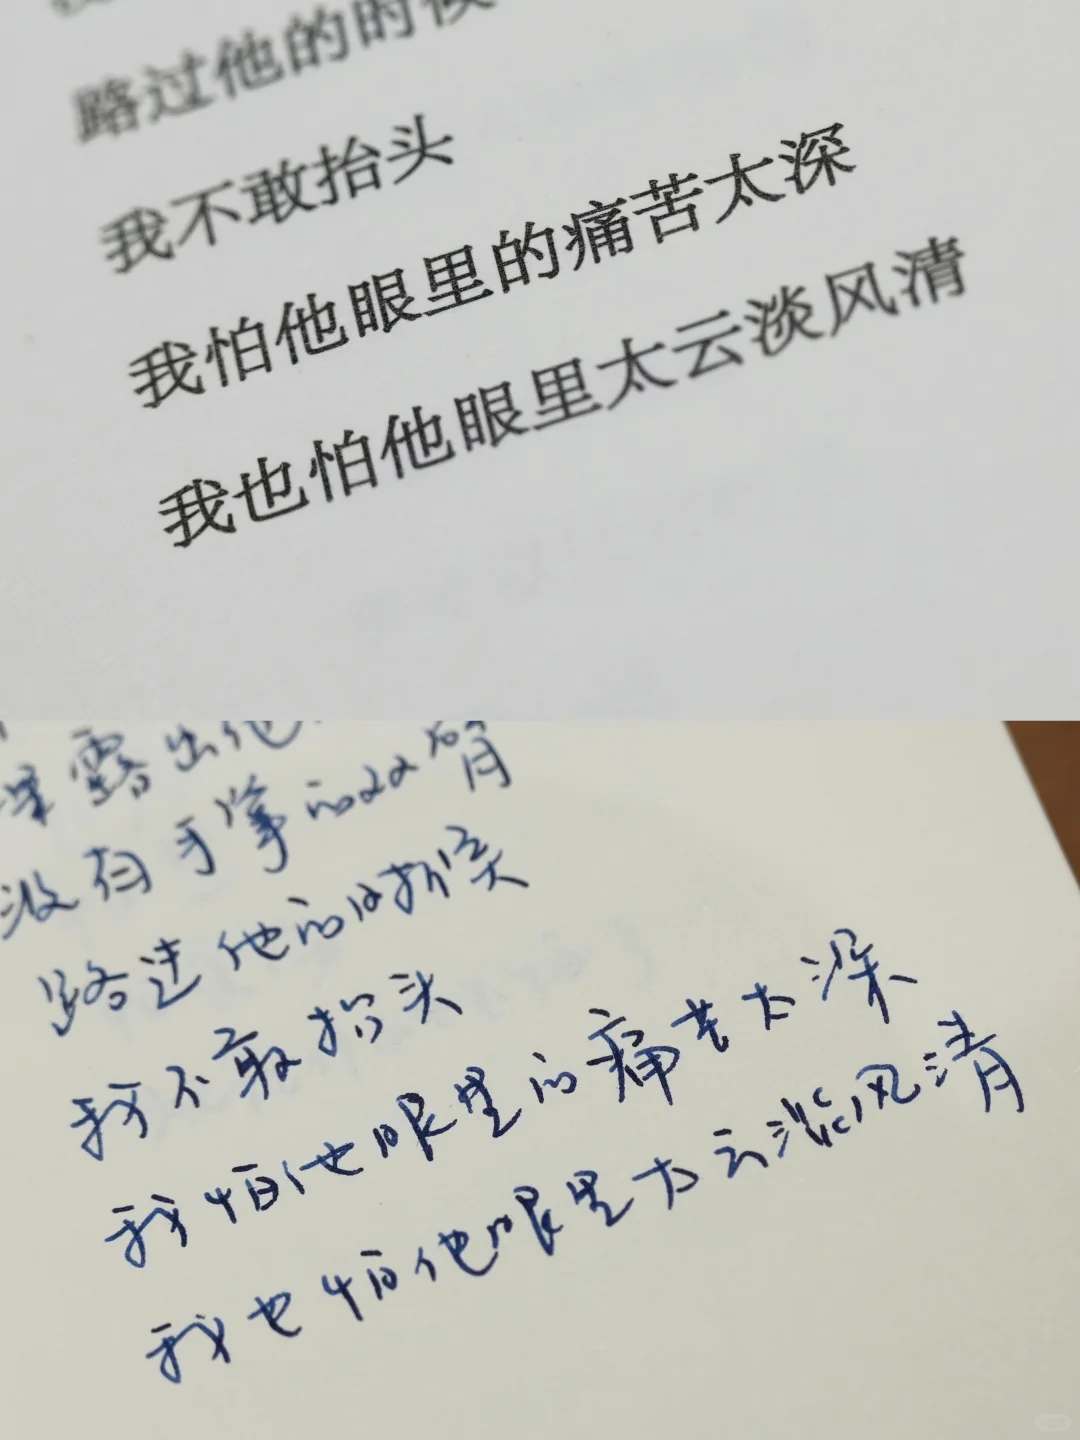 路过他的时候
我不敢抬头
我怕他眼里的痛苦太深
我也怕他眼里太云淡风清
露出他
没有手掌的双臂
路过他的时候
我不敢抬头
我怕他眼里的痛苦太深
我也怕他眼里太云淡风清